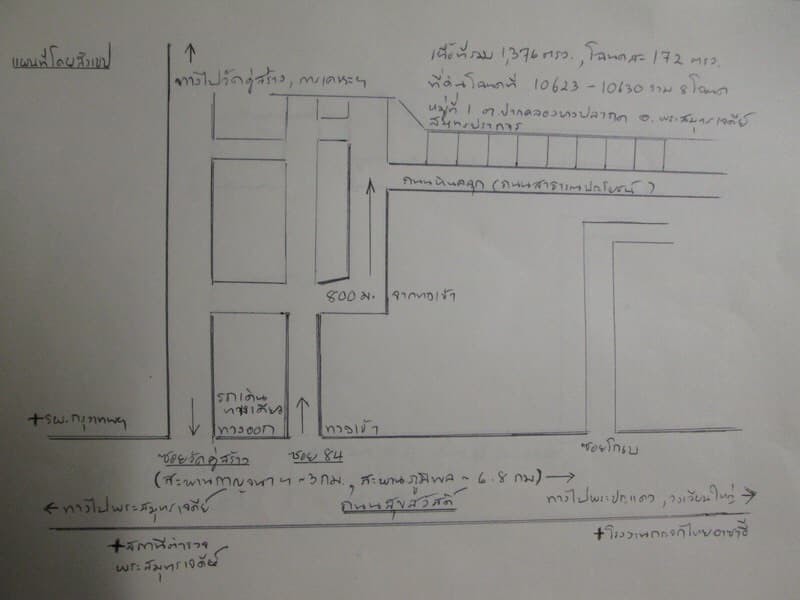 แผนที่โดยสังเขป
เนื้อที่รวม 1,376 ตรว., โฉนดละ 172 ตรว.
ทางไปวัดคู่สร้าง, การเคหะฯ
ที่ดินโฉนดที่ 10623 - 10630 รวม 8 โฉนด
หมู่ที่ 1 ต.ปากคลองบางปลากด อ.พระสมุทรเจดีย์
สมุทรปราการ
ถนนหินคลุก (ถนนสาธารณประโยชน์)
800 ม. จากทางเข้า
รถเดิน
ทางเดียว
ทางออก
ทางเข้า
+รพ.กรุงเทพฯ
ซอยวัดคู่สร้าง
ซอย 84
ซอยโกเบ
(สะพานกาญจนาฯ ~3 กม., สะพานภูมิพล ~ 6.8 กม)
ทางไปพระสมุทรเจดีย์
ถนนสุขสวัสดิ์
ทางไปพระประแดง, วงเวียนใหญ่
+สถานีตำรวจ
พระสมุทรเจดีย์
+โรงงานกระจกไทยอาซาฮี